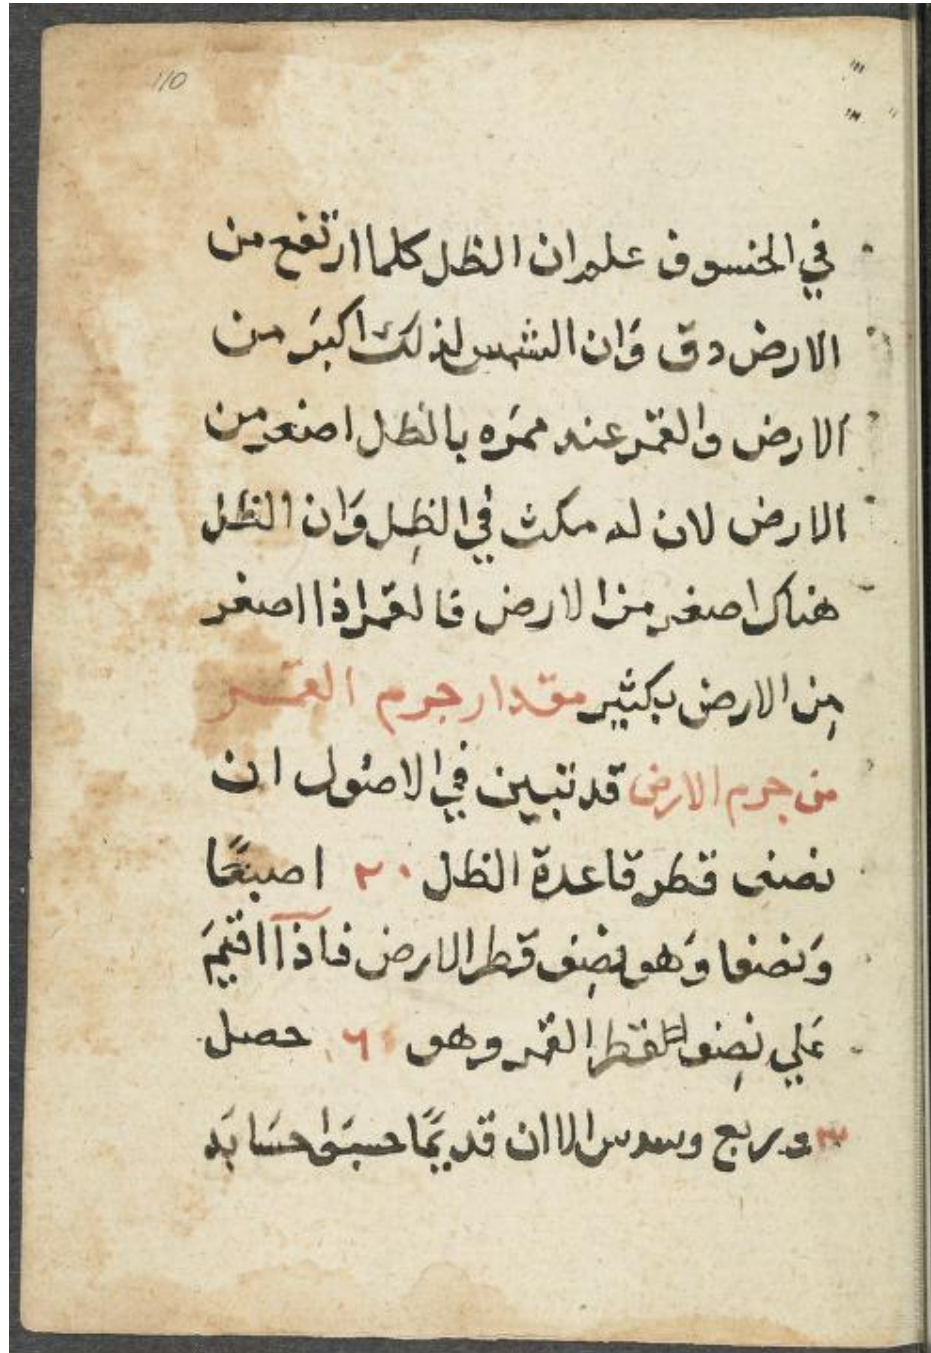 110
في الخسوف علم ان الظل كلما ارتفع من
الارض دق وَان الشمس لذلك اكبَر من
الارض والقمر عند ممرَه بالظل اصغر من
الارض لان له مكث في الظِل وَان الظل
هناك اصغر من الارض فالقمر اذا اصغر
مِن الارض بكثير مقدار جرم القمر
من جرم الارض قد تبين في الاصُول ان
نصف قطر قاعدة الظل ٢٠ اصبعًا
وَنصفا وَهو نصِف قطر الارض فاذا اقيمَ
عَلي نصِف القطر القمر وهو ٦ حصل
٣ وربع وسدس الا ان قديمًا حسبَوا حسَابَه